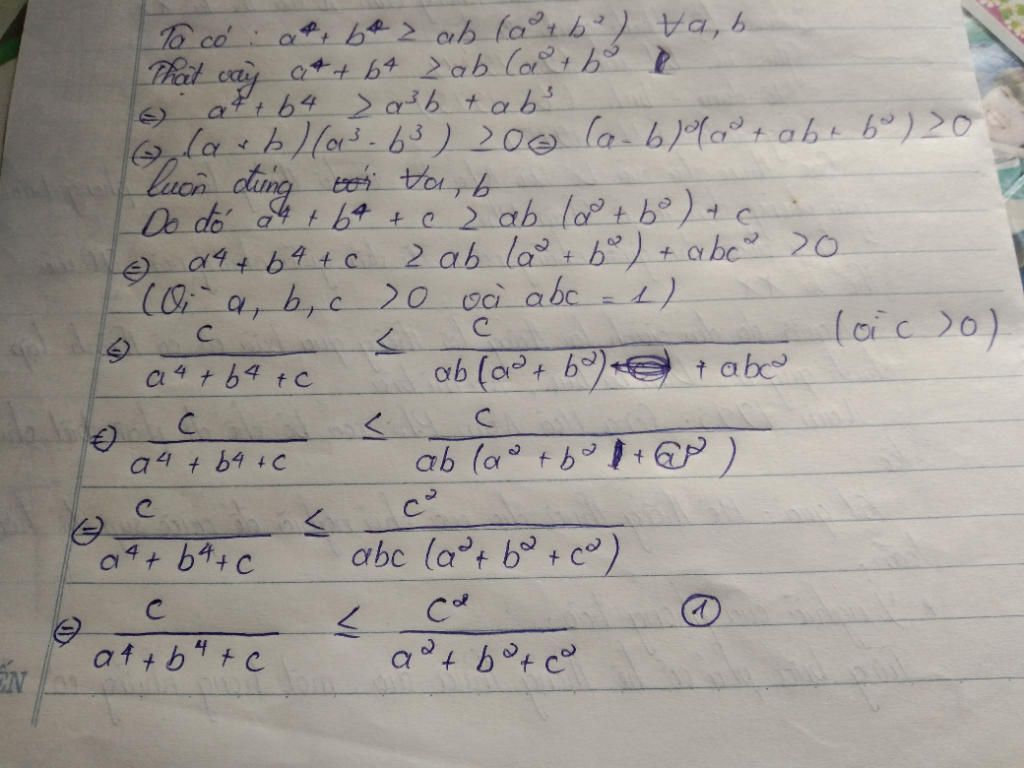 Ta có : a⁴ + b⁴ ≥ ab (a² + b²) ∀a, b
Thật vậy a⁴ + b⁴ ≥ ab (a² + b²
⇔ a⁴ + b⁴ ≥ a³b + ab³
⇔ (a - b)(a³ - b³) ≥ 0 ⇔ (a - b)²(a² + ab + b²) ≥ 0
luôn đúng với ∀a, b
Do đó a⁴ + b⁴ + c ≥ ab (a² + b²) + c
⇔ a⁴ + b⁴ + c ≥ ab (a² + b²) + abc² > 0
(Vì a, b, c > 0 và abc = 1)
⇔ c / (a⁴ + b⁴ + c) ≤ c / (ab(a² + b²) + abc²) (vì c > 0)
⇔ c / (a⁴ + b⁴ + c) ≤ c / (ab (a² + b² + c²))
⇔ c / (a⁴ + b⁴ + c) ≤ c² / (abc (a² + b² + c²))
⇔ c / (a⁴ + b⁴ + c) ≤ c² / (a² + b² + c²) ①
ẾN